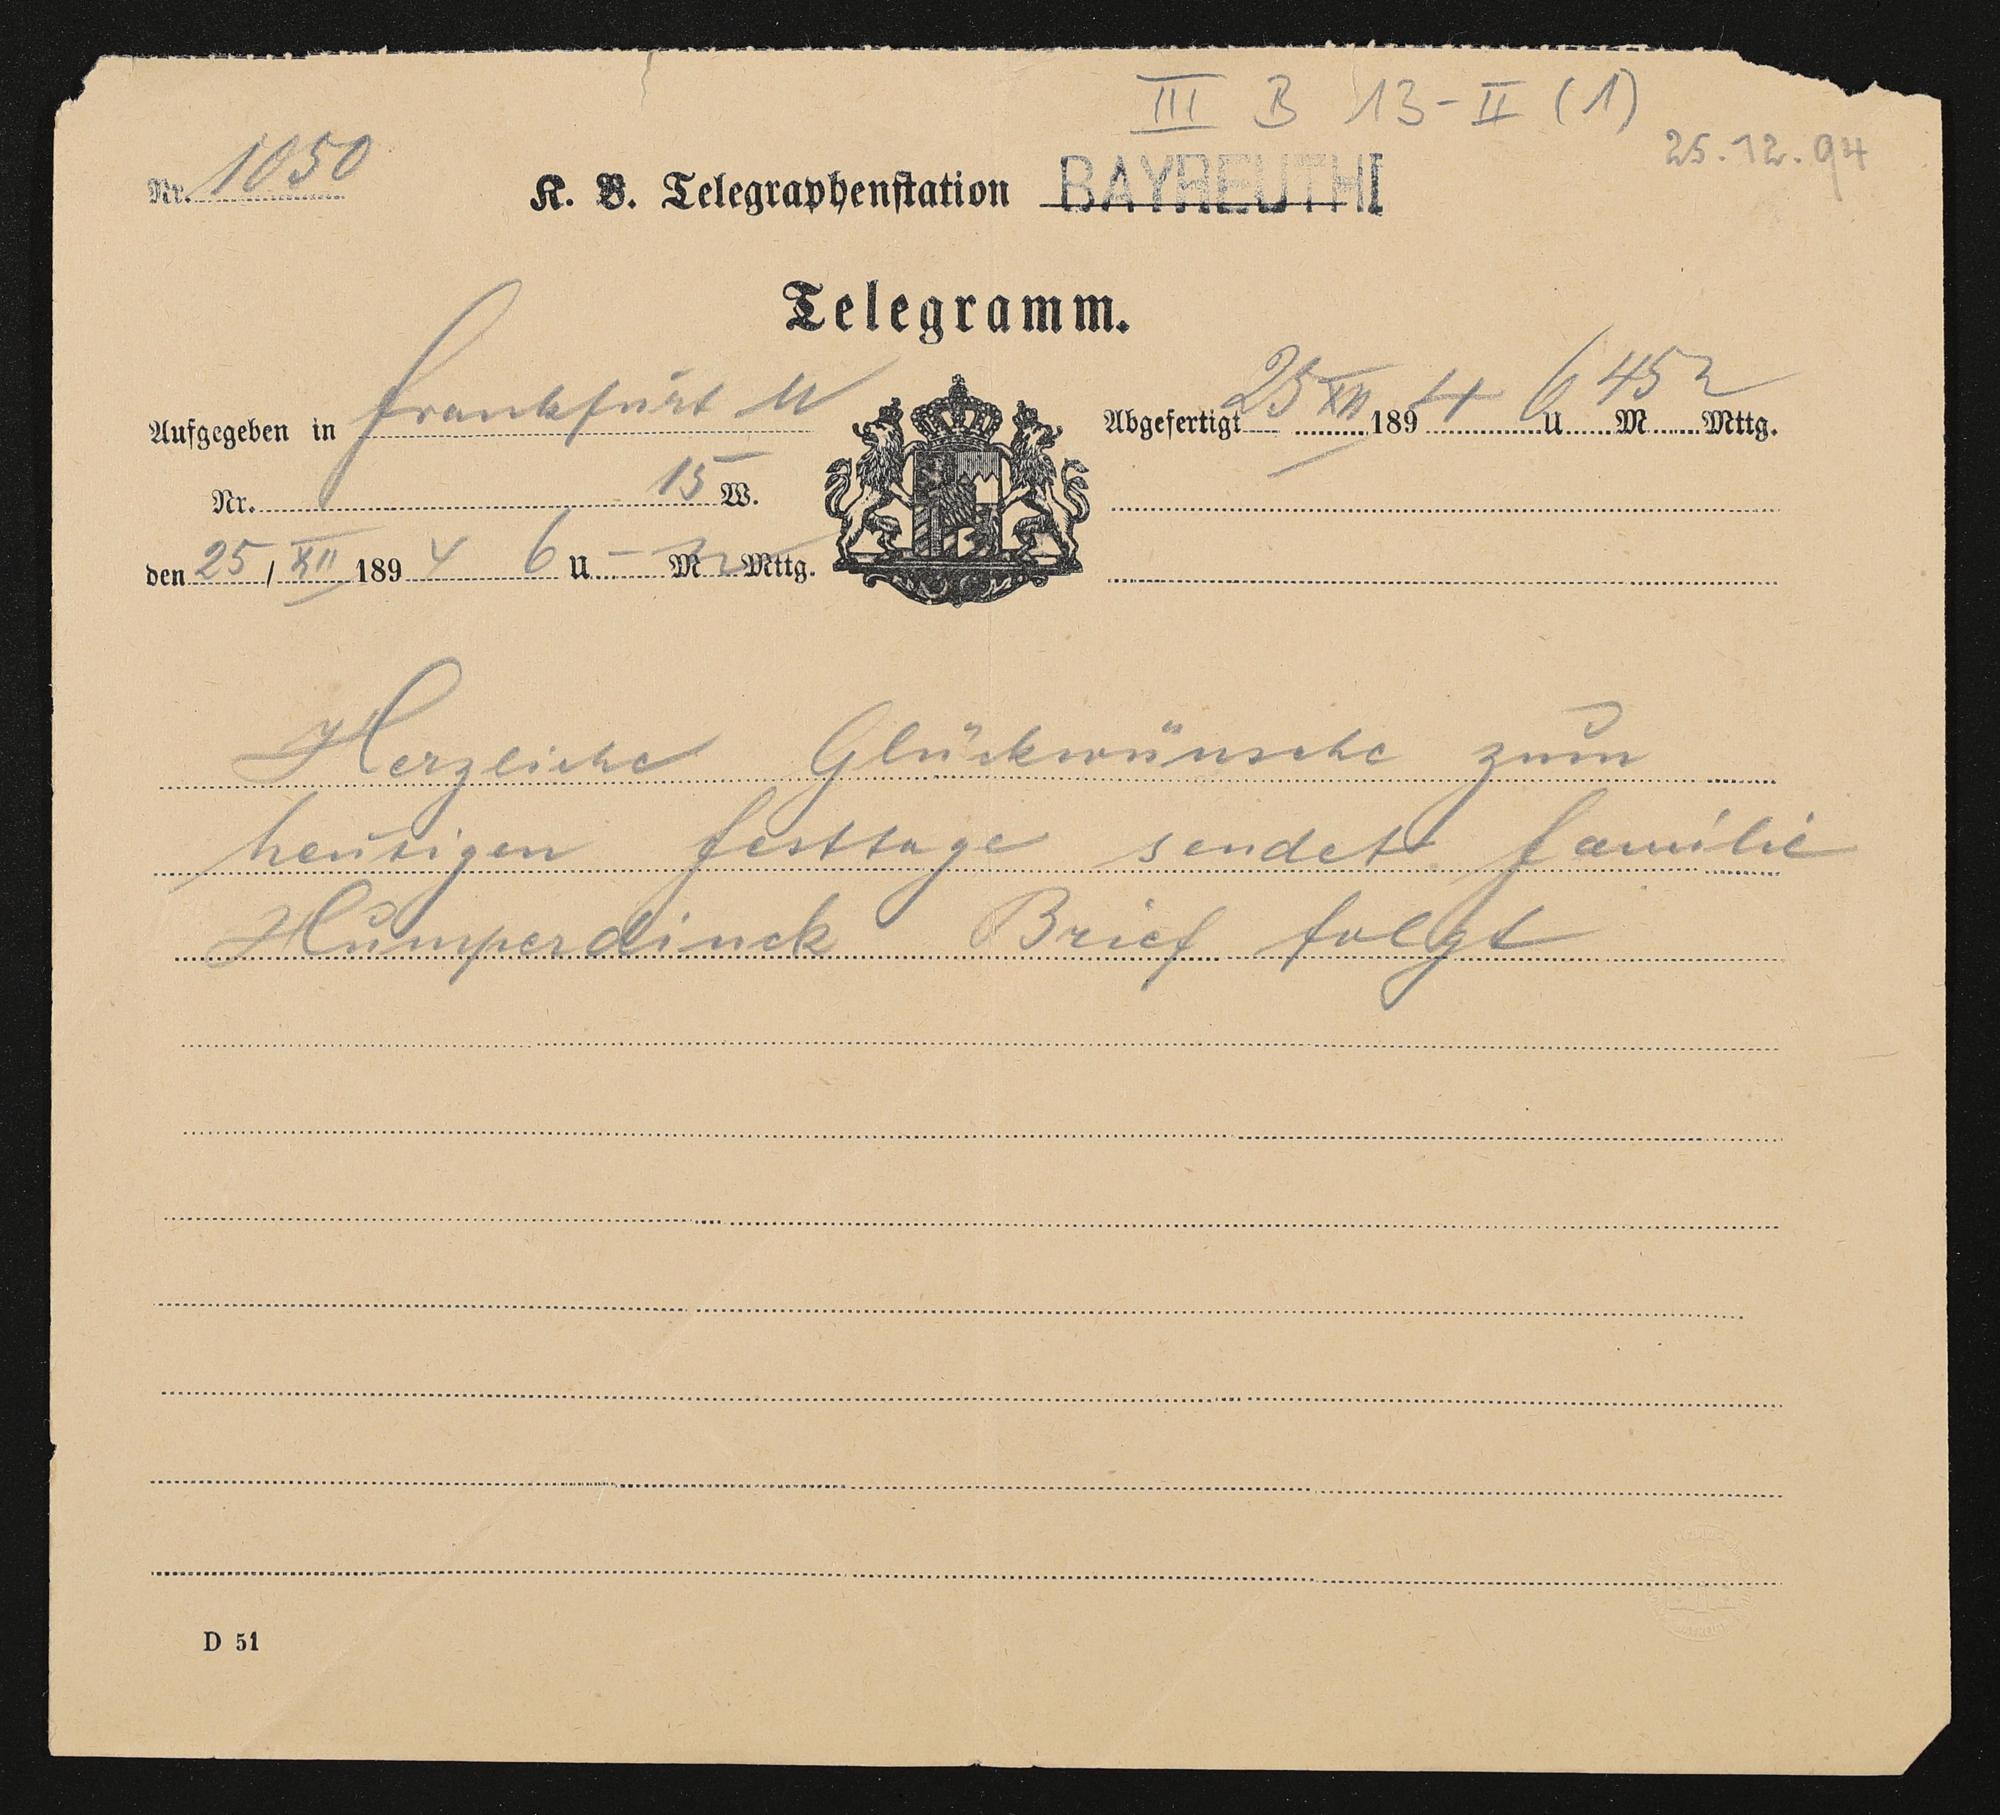 III B 13-II (1)
25.12.94
Nr. 1050
K. B. Telegraphenstation BAYREUTH I
Telegramm.
Aufgegeben in Frankfurt M
Abgefertigt 25 XII 1894 6 U 45 M n Mttg.
Nr. 15 W.
den 25 / XII 1894 6 U - M n Mttg.
Herzliche Glückwünsche zum
heutigen Festtage sendet Familie
Humperdinck Brief folgt
D 51